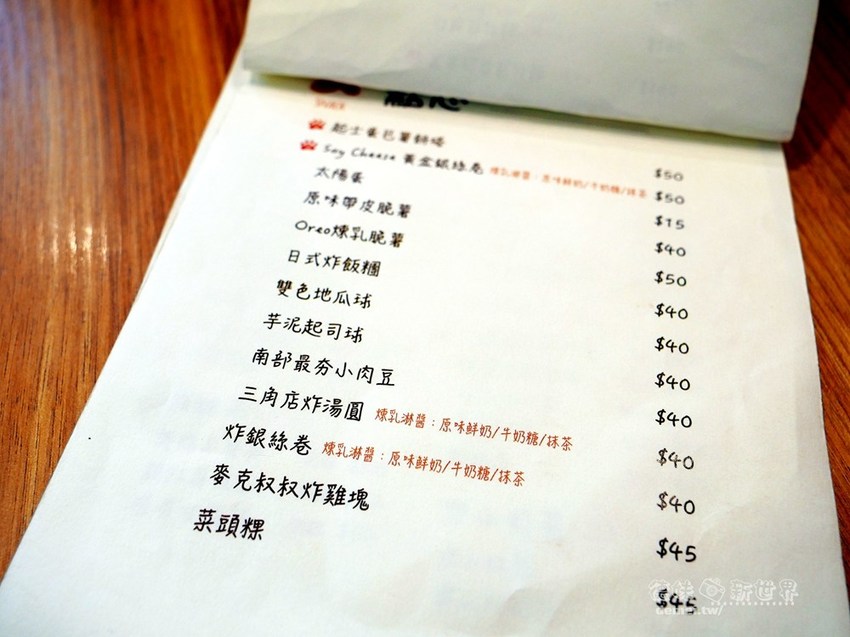 點心
起士蛋 薯餅 $50
Say Cheese 黃金銀絲卷 煉乳淋醬：原味鮮奶/牛奶糖/抹茶 $50
太陽蛋 $15
原味帶皮脆薯 $40
Oreo煉乳脆薯 $50
日式炸飯糰 $40
雙色地瓜球 $40
芋泥起司球 $40
南部最夯小肉豆 $40
三角店炸湯圓 煉乳淋醬：原味鮮奶/牛奶糖/抹茶 $40
炸銀絲卷 煉乳淋醬：原味鮮奶/牛奶糖/抹茶 $40
麥克叔叔炸雞塊 $45
菜頭粿 $45
新世界